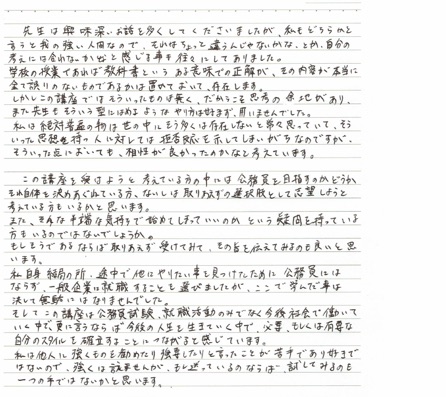 先生は興味深いお話を多くしてくださいましたが、私もどちらかと
言うと我の強い人間なので、それはちょっと違うんじゃないかな、とか、自分の
考えには合わないかなと感じる事も往々にしてありました。
学校の授業であれば教科書という ある意味での正解が、その内容が本当に
全て誤りのないものであるかは置いておいて、存在します。
しかしこの講座ではそういったものは無く、だからこそ思考の余地があり、
また先生もそういう型にはめるようなやり方は好まず、用いませんでした。
私は絶対普遍の物は世の中にもう多くは存在しないと常々思っていて、そう
いった思想を持つ人に対しては拒否感を示してしまいがちなのですが、
そういった点においても、相性が良かったのかなと考えています。
この講座を受けようと考えている方の中には公務員を目指すのかどうか、
それ自体を決めあぐねている方、ないしは取りあえずの選択肢として志望しようと
考えている方もいるかと思います。
また、そんな半端な気持ちで始めてしまっていいのかという疑問を持っている
方もいるのではないでしょうか。
もしそうであるならば取りあえず受けてみて、その旨を伝えてみるのも良いと思
います。
私自身結局の所、途中で他にやりたい事を見つけたために公務員には
ならず、一般企業に就職することを選びましたが、ここで学んだ事は
決して無駄にはなりませんでした。
そしてこの講座は公務員試験、就職活動のみでなく今後社会で働いてい
く中で、更に言うならば今後の人生を生きていく中で、必要、もしくは有要な
自分のスタイルを確立することにつながると感じています。
私は他人に強くものを勧めたり強要したりと言ったことが苦手であり好きで
はないので、強くは言えませんが、もし迷っているのならば、試してみるのも
一つの手ではないかと思います。